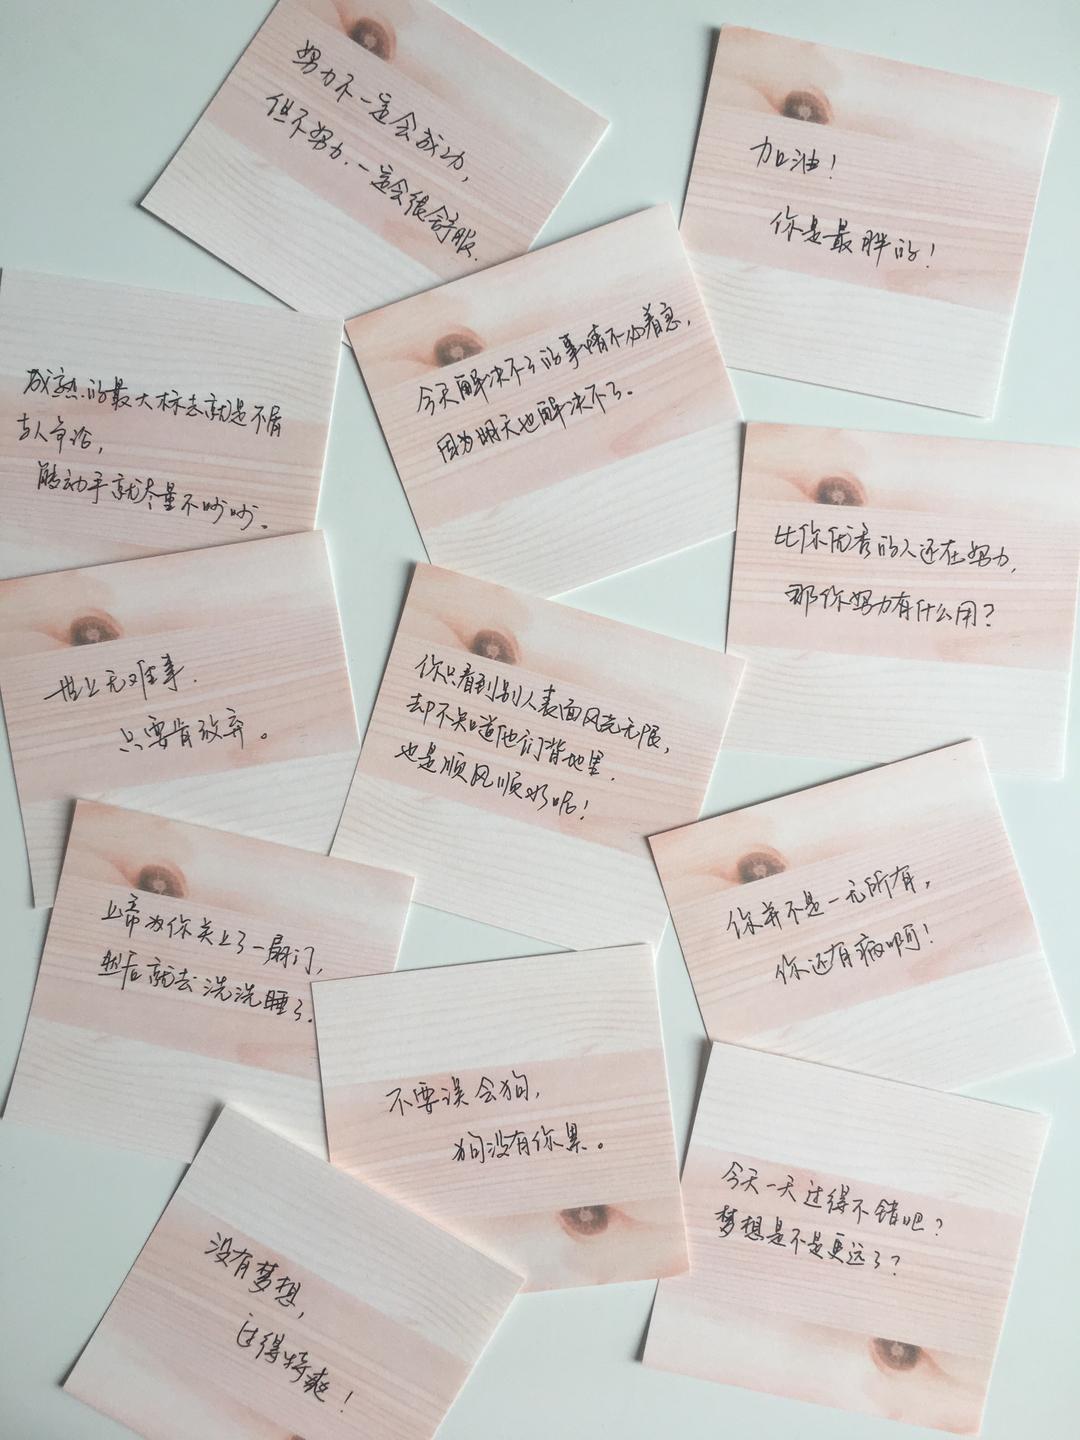 努力不一定会成功,
但不努力.一定会很舒服.
加油!
你是最胖的!
今天解决不了的事情不必着急,
因为明天也解决不了。
成熟的最大标志就是不屑
与人争论,
能动手就尽量不吵吵。
比你优秀的人还在努力,
那你努力有什么用?
世上无难事.
只要肯放弃。
你只看到别人表面风光无限,
却不知道他们背地里.
也是顺风顺水呢!
上帝为你关上了一扇门,
然后就去洗洗睡了.
你并不是一无所有,
你还有病啊!
不要误会狗,
狗没有你累。
今天一天过得不错吧?
梦想是不是更远了?
没有梦想,
过得特爽!